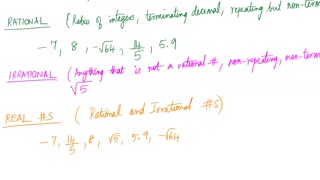 RATIONAL (Ratio of integers, terminating decimal, repeating but non-term
-7, 8, -√64, 14/5, 5.9
IRRATIONAL (Anything that is not a rational #, non-repeating, non-term
√5
REAL #S ( Rational and Irrational #S)
-7, 14/5, 8, √5, 5.9, -√64